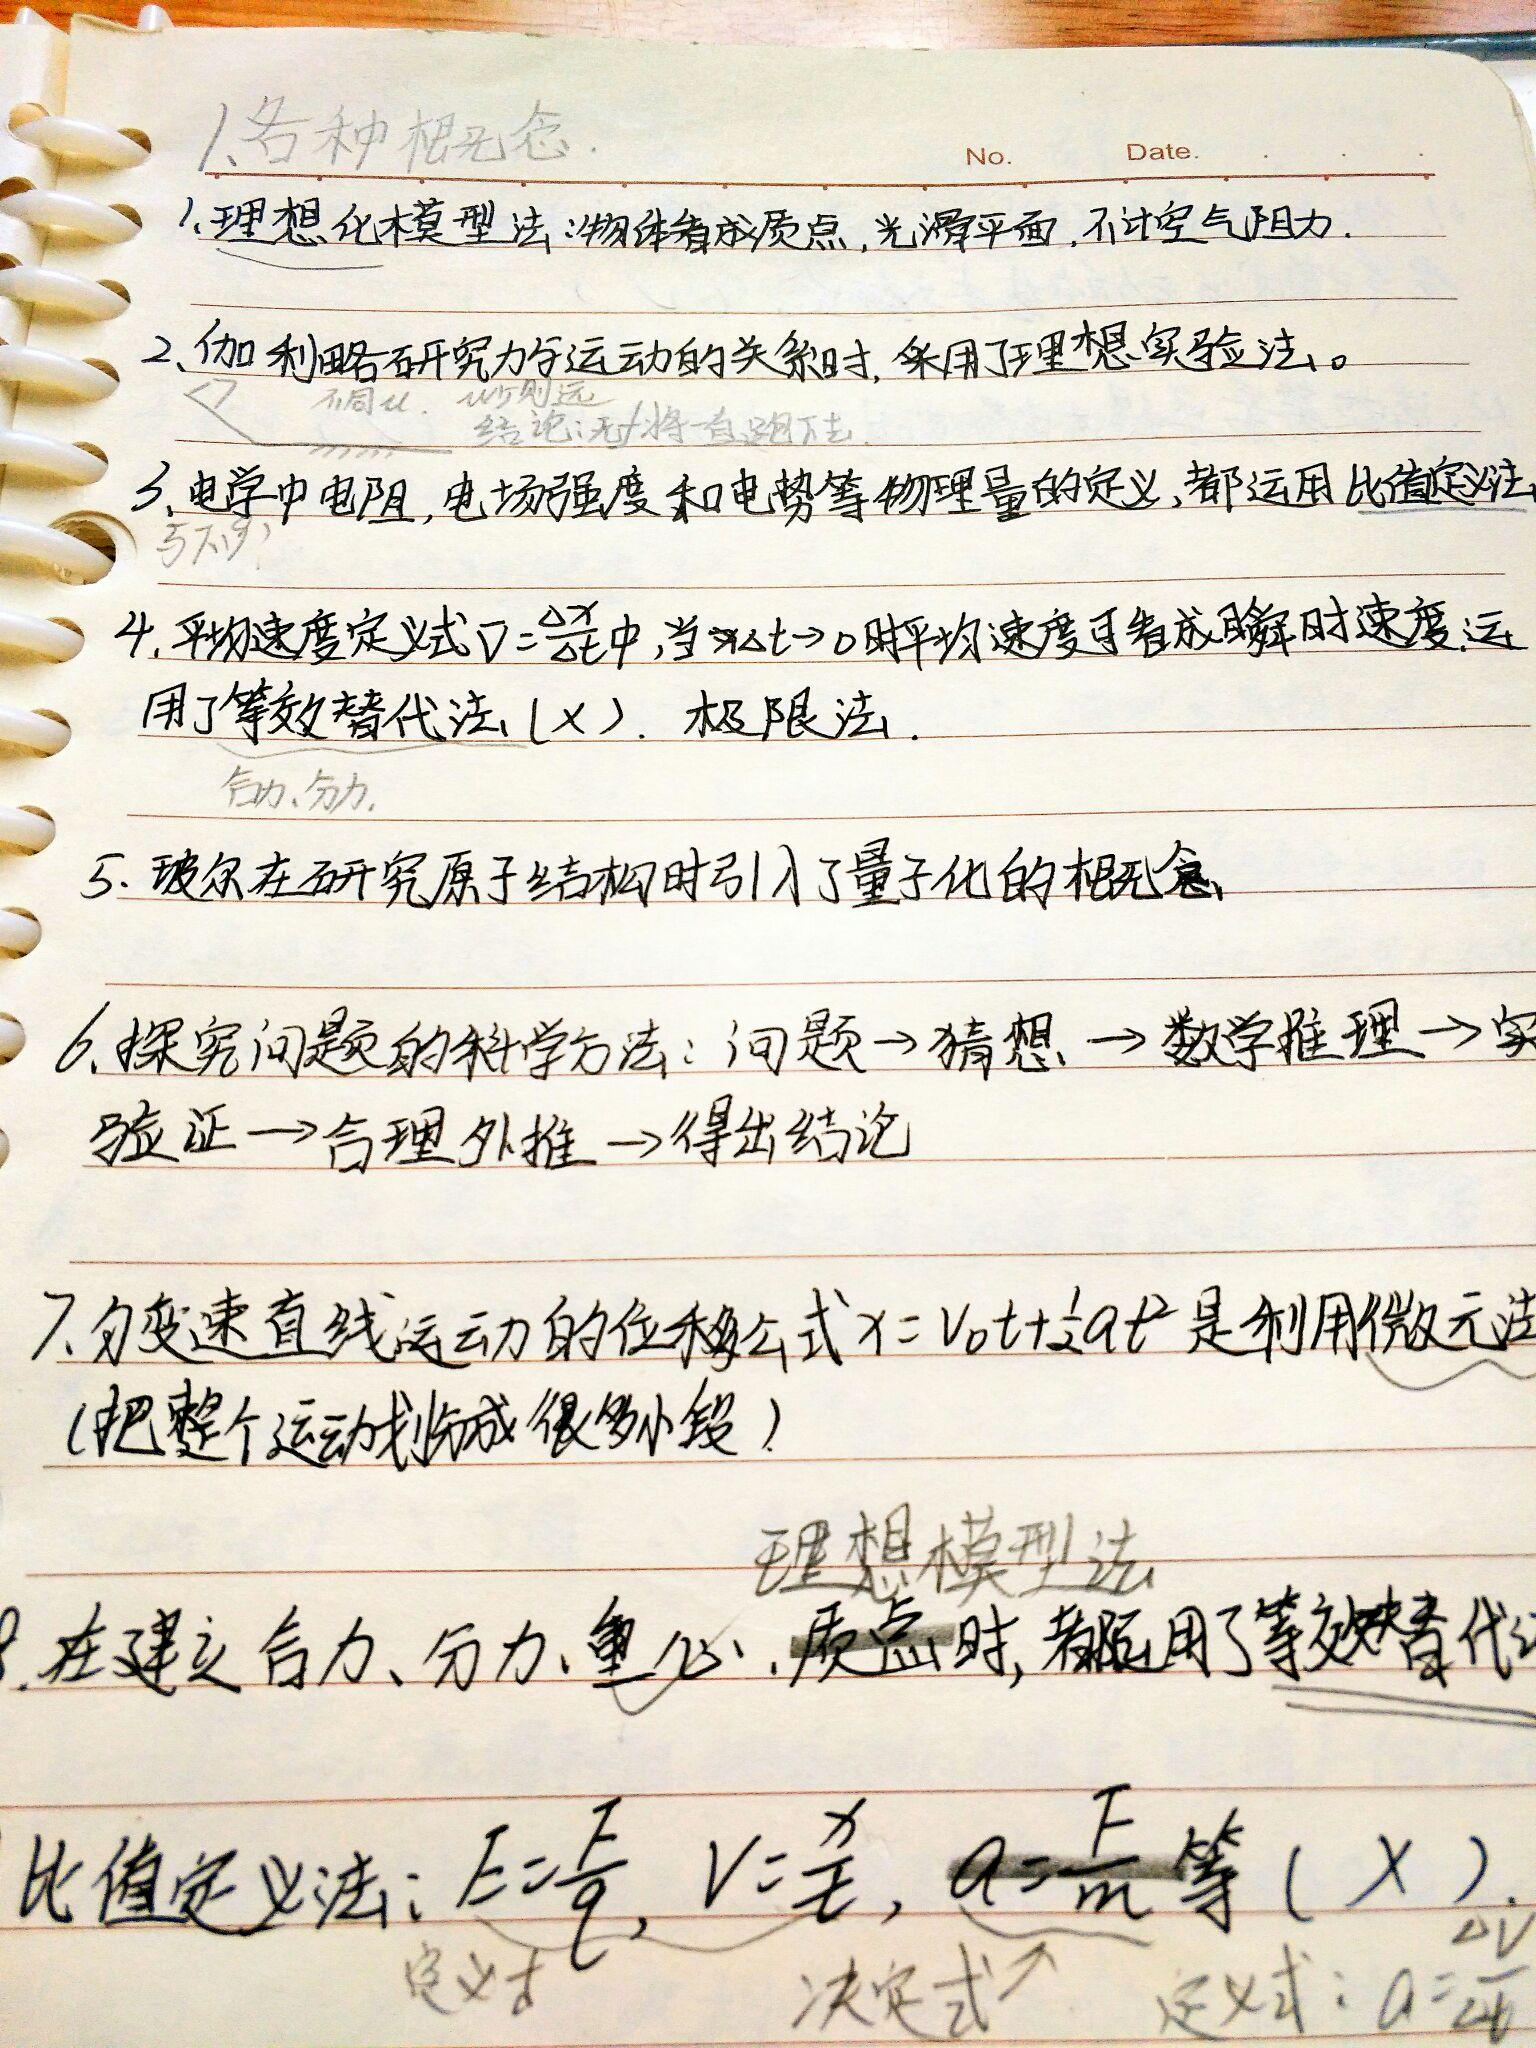 1、各种概念.
No. Date.
1、理想化模型法:物体看成质点,光滑平面,不计空气阻力.
2、伽利略研究力与运动的关系时,采用了理想实验法。
不同u. u小则远
结论:无f将一直跑下去.
3、电学中电阻,电场强度和电势等物理量的定义,都运用比值定义法
4、平均速度定义式V=Δx/Δt中,当Δt→0时平均速度可看成瞬时速度.运
用了等效替代法(×). 极限法.
合力、分力.
5.玻尔在研究原子结构时引入了量子化的概念,
6、探究问题的科学方法:问题→猜想→数学推理→实
验证→合理外推→得出结论
7.匀变速直线运动的位移公式x=V₀t+½at²是利用微元法
(把整个运动划分成很多小段)
理想模型法
.在建立合力、分力、重心、质点时,都运用了等效替代法
比值定义法:E=F/q,V=x/t,a=F/m等(×).
定义式 决定式↗ 定义式:a=ΔV/Δt